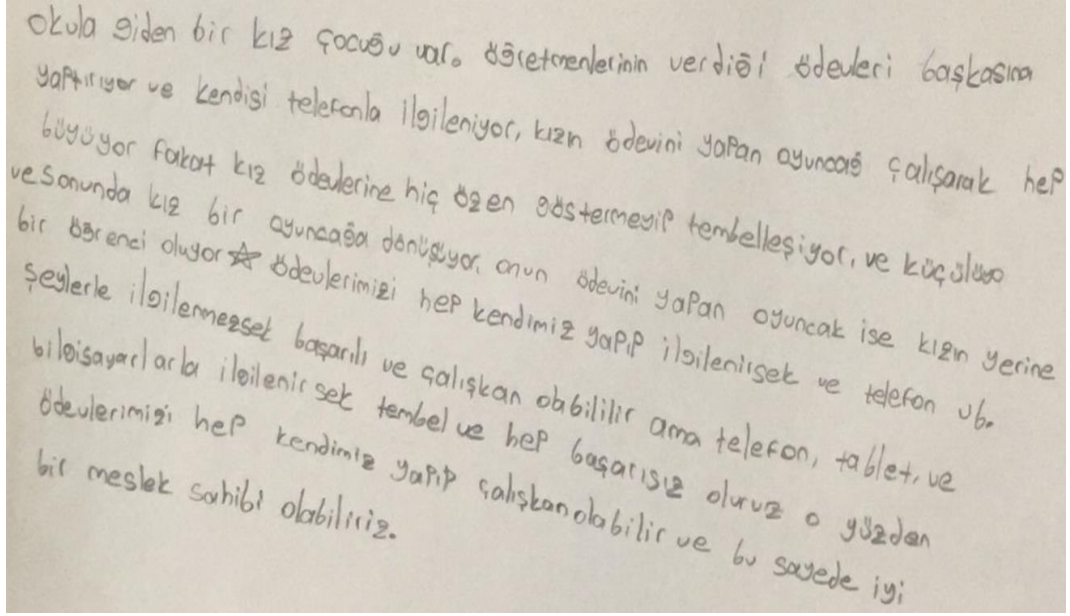 okula giden bir kız çocuğu var. öğretmenlerinin verdiği ödevleri başkasına
yaptırıyor ve kendisi telefonla ilgileniyor, kızın ödevini yapan oyuncağ çalışarak hep
büyüyor fakat kız ödevlerine hiç özen göstermeyip tembelleşiyor, ve küçülüyo
ve sonunda kız bir oyuncağa dönüşüyor, onun ödevini yapan oyuncak ise kızın yerine
bir öğrenci oluyor ☆ ödevlerimizi hep kendimiz yapıp ilgilenirsek ve telefon vb.
şeylerle ilgilenmezsek başarılı ve çalışkan olabililir ama telefon, tablet, ve
bilgisayarlarla ilgilenirsek tembel ve hep başarısız oluruz o yüzden
ödevlerimizi hep kendimiz yapıp çalışkan olabilir ve bu sayede iyi
bir meslek sahibi olabiliriz.